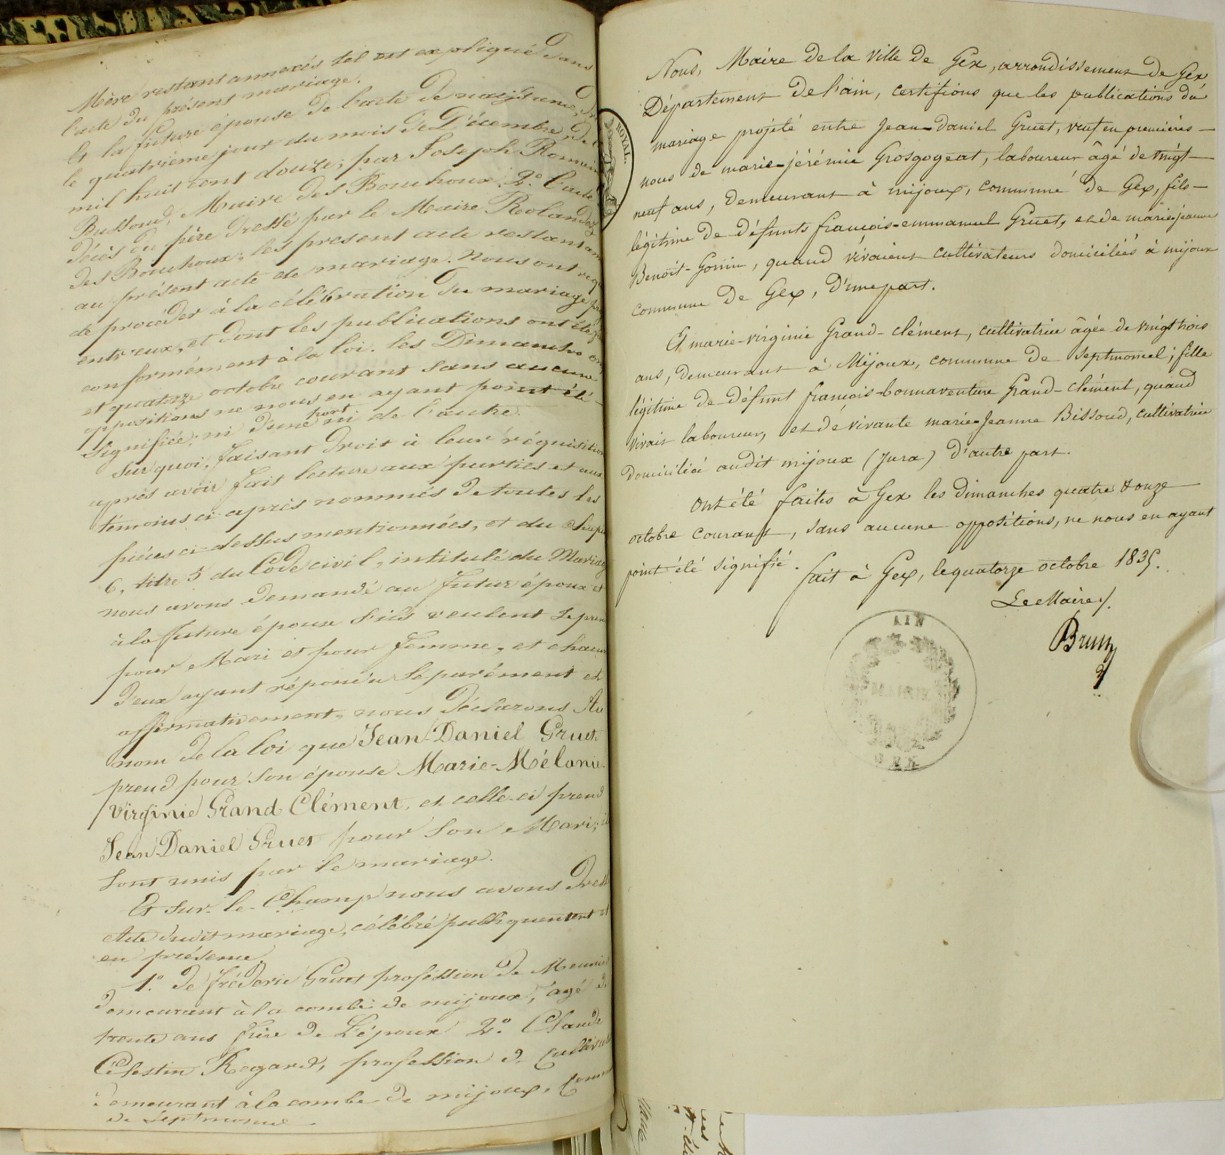 Mère restant annexés tel est expliqué dans
l'acte du présent mariage.
Et la future épouse de l'acte de naissance
le quatrième jour du mois de Décembre
mil huit cent douze; par Joseph Romain
Bussoud Maire des Bouchoux. 2° l'acte
décès du père dressé par le Maire
des Bouchoux; les present acte restant
au présent acte de mariage. Nous ont
de procéder à la célébration du mariage
entr'eux, et dont les publications ont été
conformément à la loi. les Dimanche
et quatorze octobre courant sans aucune
oppositions ne nous en ayant point été
signifié, ni d'une part ni de l'autre.
Sur quoi, faisant droit à leur réquisition
après avoir fait lecture aux parties et aux
témoins ci après nommés de toutes les
pièces ci-dessus mentionnées, et du
6, titre 5 du Code civil, intitulé du Mariage
nous avons demandé au futur époux et
à la future épouse s'ils veulent se
pour Mari et pour femme, et
deux ayant répondu séparément et
affirmativement, nous déclarons Au
nom de la loi que Jean Daniel Gruet
prend pour son épouse Marie-Mélanie
Virginie Grand Clément, et celle-ci prend
Jean Daniel Gruet pour son Mari,
sont unis par le mariage.
Et sur-le-Champ nous avons
Acte dudit mariage, célébré publiquement
en présence
1° de frédéric Gruet profession de
demeurant à la combe de mijoux, âgé de
trente ans frère de L'époux 2° Claude
Célestin Regard, profession de
demeurant à la combe de mijoux.
de Septmoncel
ROYAL.
Nous, Maire de la Ville de Gex, arrondissement de Gex
Département de l'ain, certifions que les publications du
mariage projeté entre Jean-Daniel Gruet, veuf en premières
nous de marie-jérémie Grosgogeat, laboureur âgé de vingt-
neuf ans, demeurant à mijoux, commune de Gex, fils
légitime de défunts françois-emmanuel Gruet, et de marie-jeanne
Benoît-Gonin, quand vivaient cultivateurs domiciliés à mijoux
commune de Gex, d'une part.
Et marie-virginie Grand-clément, cultivatrice âgée de vingt trois
ans, demeurant à Mijoux, commune de Septmoncel; fille
légitime de défunt françois-bonnaventure Grand-clément, quand
vivait laboureur, et de vivante marie-Jeanne Bissoud, cultivatrice
domiciliée audit mijoux (Jura) d'autre part.
Ont été faites à Gex les dimanches quatre & onze
octobre courant, sans aucune oppositions, ne nous en ayant
point été signifié. fait à Gex, le quatorze octobre 1835.
Le Maire,
AIN
MAIRIE
GEX